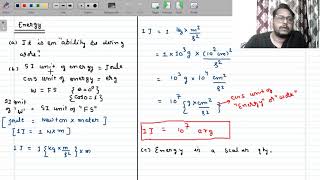 Energy
(a) It is an "ability to doing
work".
(b) SI unit of energy = Joule
CGS unit of energy = erg
W = FS { θ = 0°
cos0 = 1 }
SI unit
of "W" = SI unit of "FS"
[Joule = Newton × meter]
[1J = 1 N × m]
1J = 1 { kg × m/s² } × m
1J = 1 kg × m²/s²
= 1 × 10³ g × (10² cm)²/s²
= 10³ g × 10⁴ cm²/s²
= 10⁷ { g × cm²/s² }
CGS unit of
"Energy" or "work"
1J = 10⁷ erg
(c) Energy is a scalar qty.